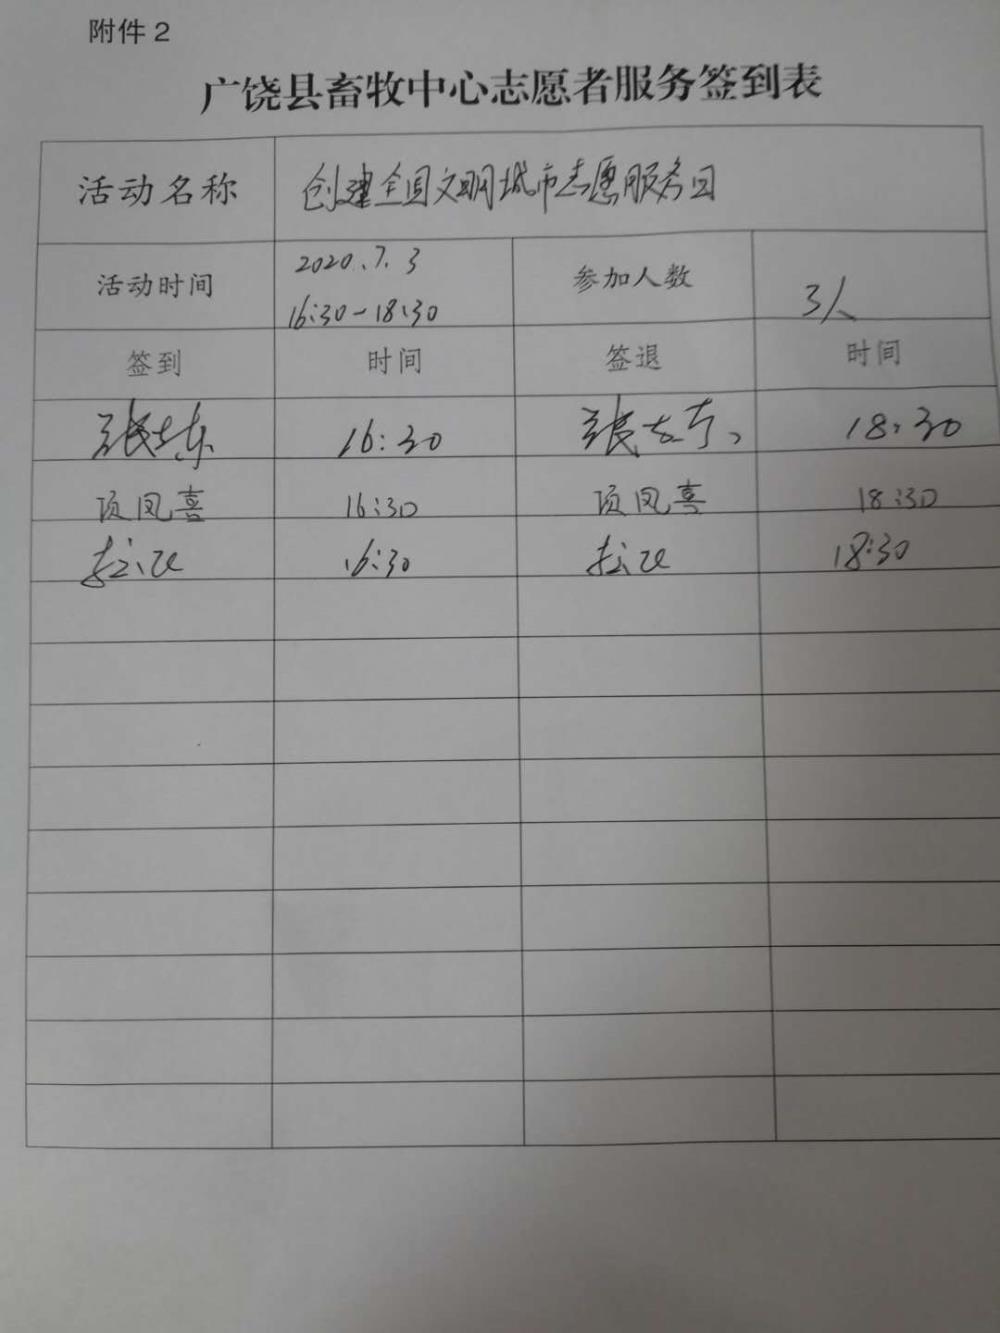 附件 2
广饶县畜牧中心志愿者服务签到表
活动名称 创建全国文明城市志愿服务日
活动时间 2020.7.3 16:30-18:30 参加人数 3人
签到 时间 签退 时间
张 16:30 张 18:30
项凤喜 16:30 项凤喜 18:30
16:30 18:30